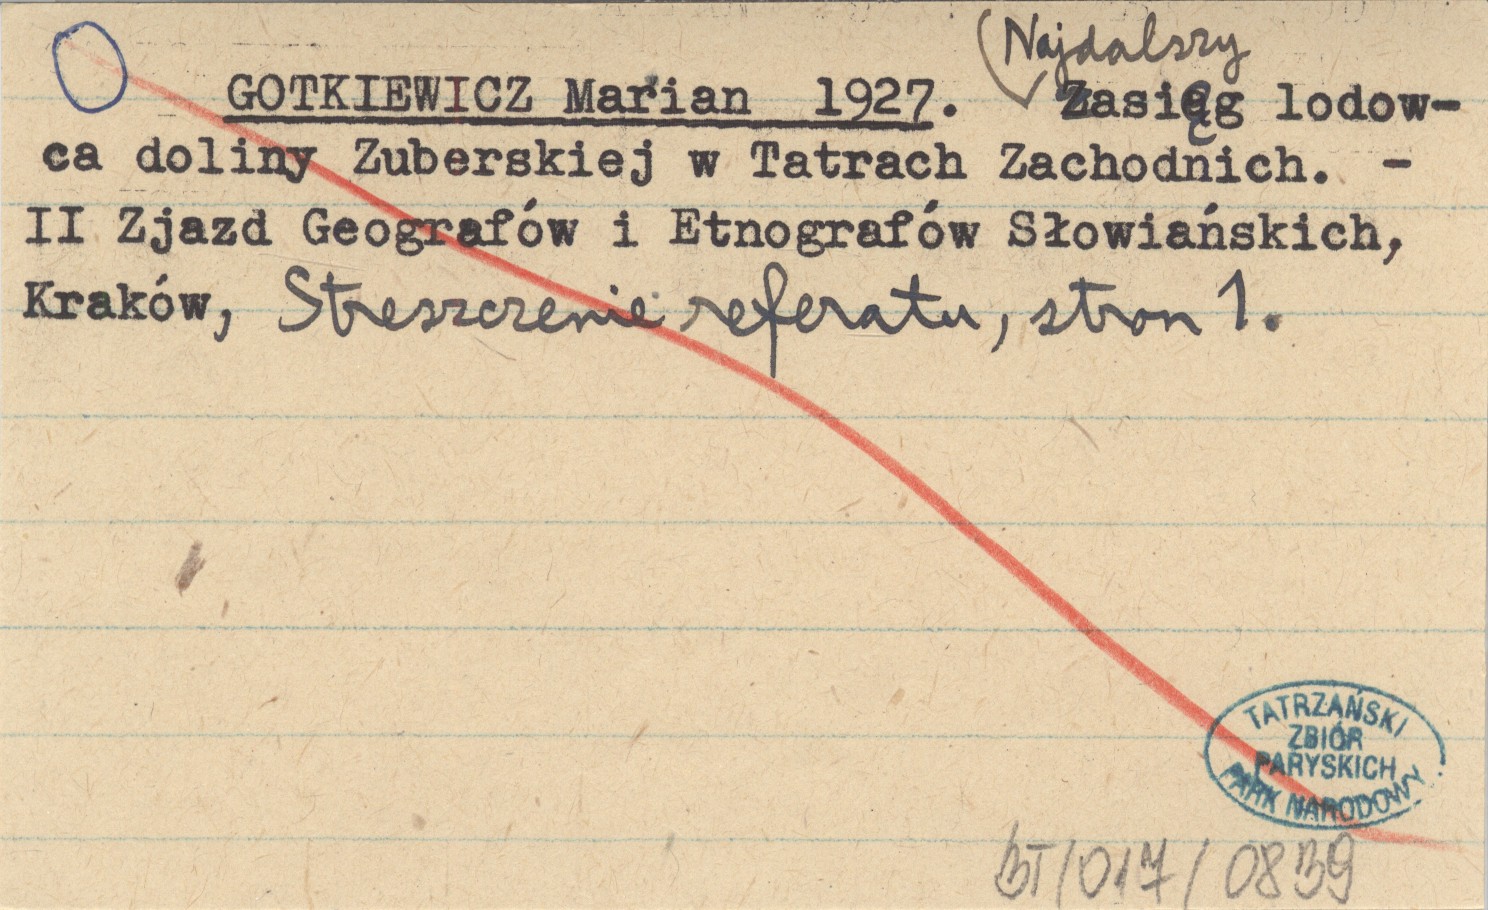 Najdalszy
GOTKIEWICZ Marian 1927. Zasięg lodow-
ca doliny Zuberskiej w Tatrach Zachodnich. -
II Zjazd Geografów i Etnografów Słowiańskich,
Kraków, Streszczenie referatu, stron 1.
TATRZAŃSKI
ZBIÓR
PARYSKICH
PARK NARODOWY
BT/017/0839